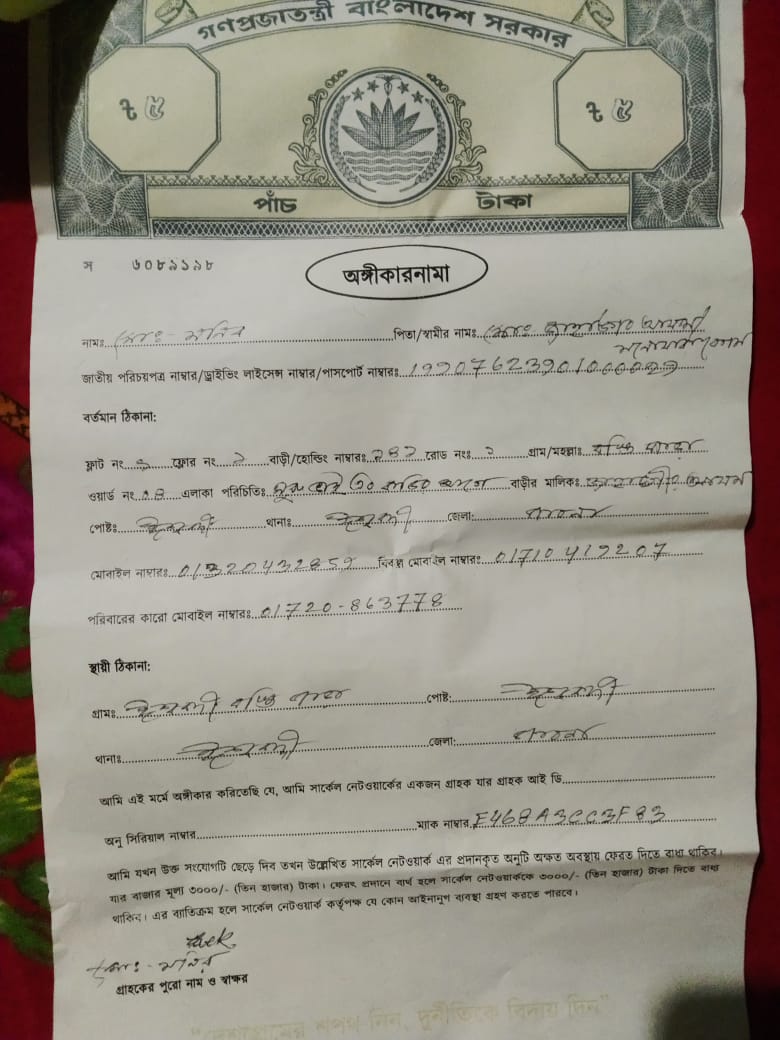 গণপ্রজাতন্ত্রী বাংলাদেশ সরকার
৳ ৫ ৳ ৫
পাঁচ টাকা
স ৬০৮৯১৯৮
অঙ্গীকারনামা
নামঃ মোঃ- মনির পিতা/স্বামীর নামঃ মোঃ
জাতীয় পরিচয়পত্র নাম্বার/ড্রাইভিং লাইসেন্স নাম্বার/পাসপোর্ট নাম্বারঃ
বর্তমান ঠিকানা:
ফ্লাট নং ফ্লোর নং ২ বাড়ী/হোল্ডিং নাম্বারঃ রোড নং গ্রাম/মহল্লাঃ
ওয়ার্ড নং এলাকা পরিচিতিঃ বাড়ীর মালিকঃ
পোষ্টঃ ঈশ্বরদী থানাঃ ঈশ্বরদী জেলা: পাবনা
মোবাইল নাম্বারঃ 01320432859 বিকল্প মোবাইল নাম্বারঃ 01710419207
পরিবারের কারো মোবাইল নাম্বারঃ 01720-863778
স্থায়ী ঠিকানা:
গ্রামঃ ঈশ্বরদী পোষ্ট: ঈশ্বরদী
থানাঃ ঈশ্বরদী জেলা: পাবনা
আমি এই মর্মে অঙ্গীকার করিতেছি যে, আমি সার্কেল নেটওয়ার্কের একজন গ্রাহক যার গ্রাহক আই ডি
অনু সিরিয়াল নাম্বার ম্যাক নাম্বার E468A3CC3F83
আমি যখন উক্ত সংযোগটি ছেড়ে দিব তখন উল্লেখিত সার্কেল নেটওয়ার্ক এর প্রদানকৃত অনুটি অক্ষত অবস্থায় ফেরত দিতে বাধ্য থাকিব।
যার বাজার মূল্য ৩০০০/- (তিন হাজার) টাকা। ফেরৎ প্রদানে ব্যর্থ হলে সার্কেল নেটওয়ার্ককে ৩০০০/- (তিন হাজার) টাকা দিতে বাধ্য
থাকিব। এর ব্যতিক্রম হলে সার্কেল নেটওয়ার্ক কর্তৃপক্ষ যে কোন আইনানুগ ব্যবস্থা গ্রহণ করতে পারবে।
মোঃ- মনির
গ্রাহকের পুরো নাম ও স্বাক্ষর
"দেশপ্রেমের শপথ নিন, দুর্নীতিকে বিদায় দিন"